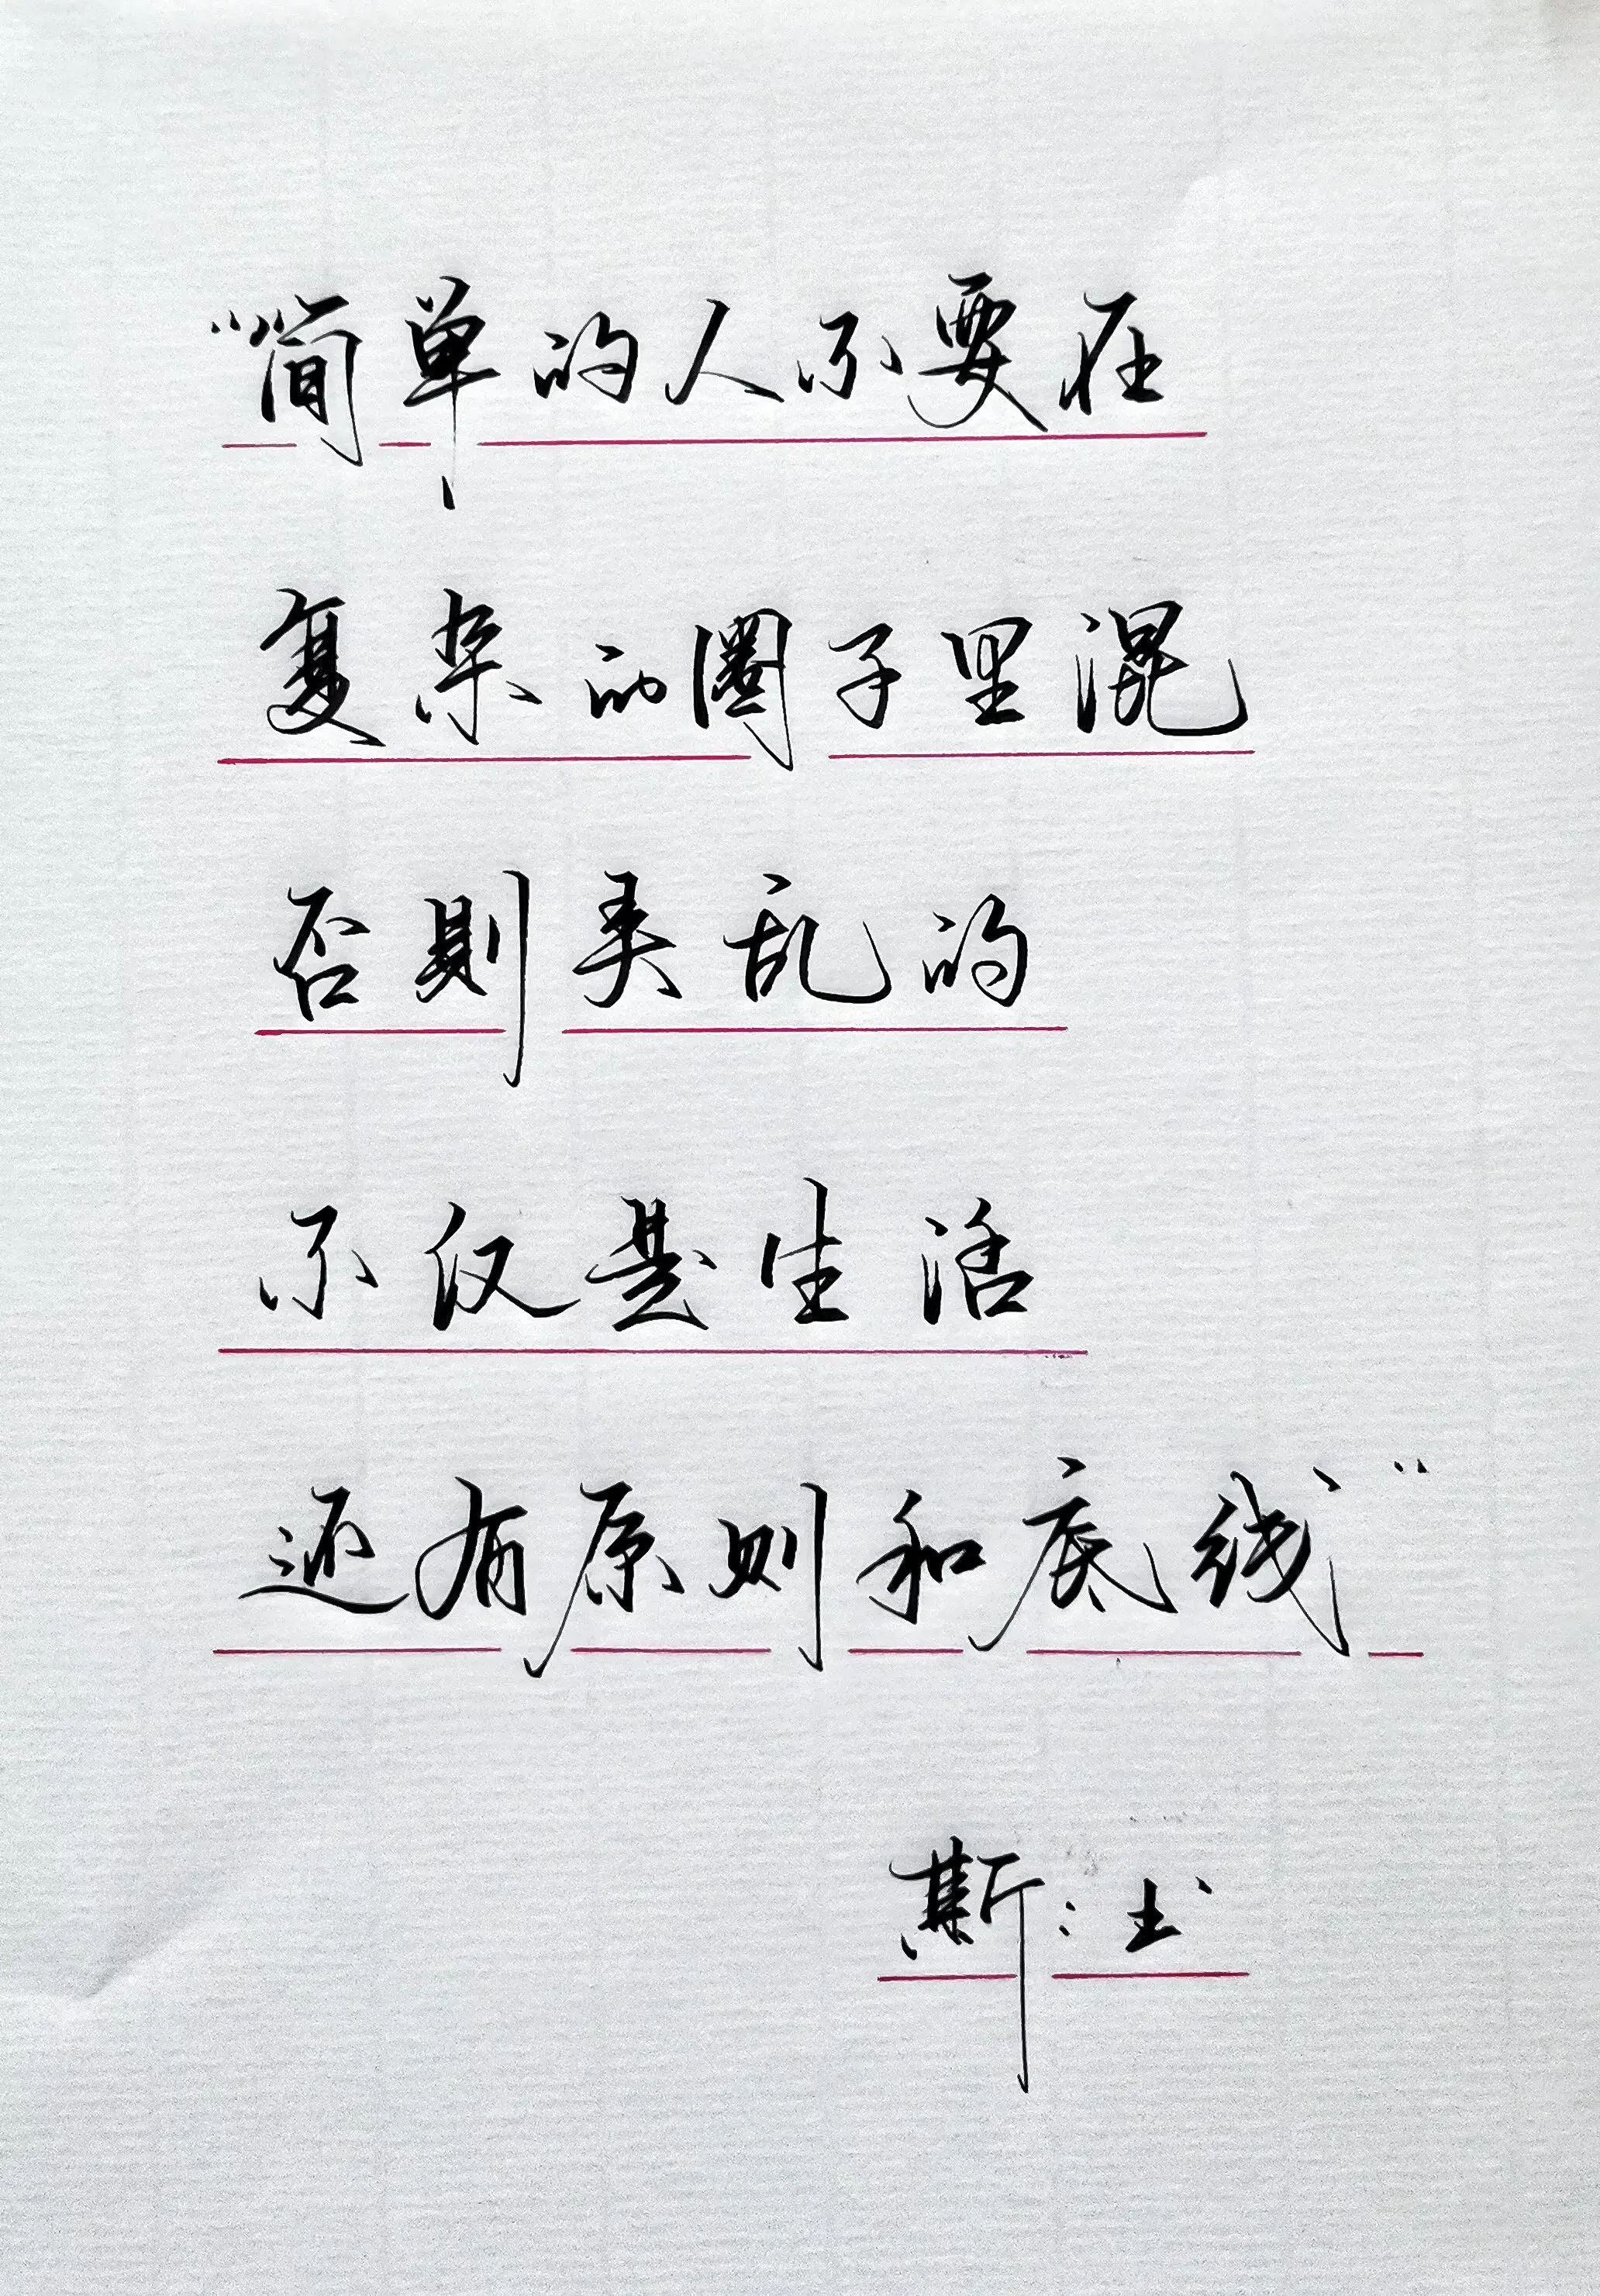 “简单的人不要在
复杂的圈子里混
否则类乱的
不仅是生活
还有原则和底线”
斯